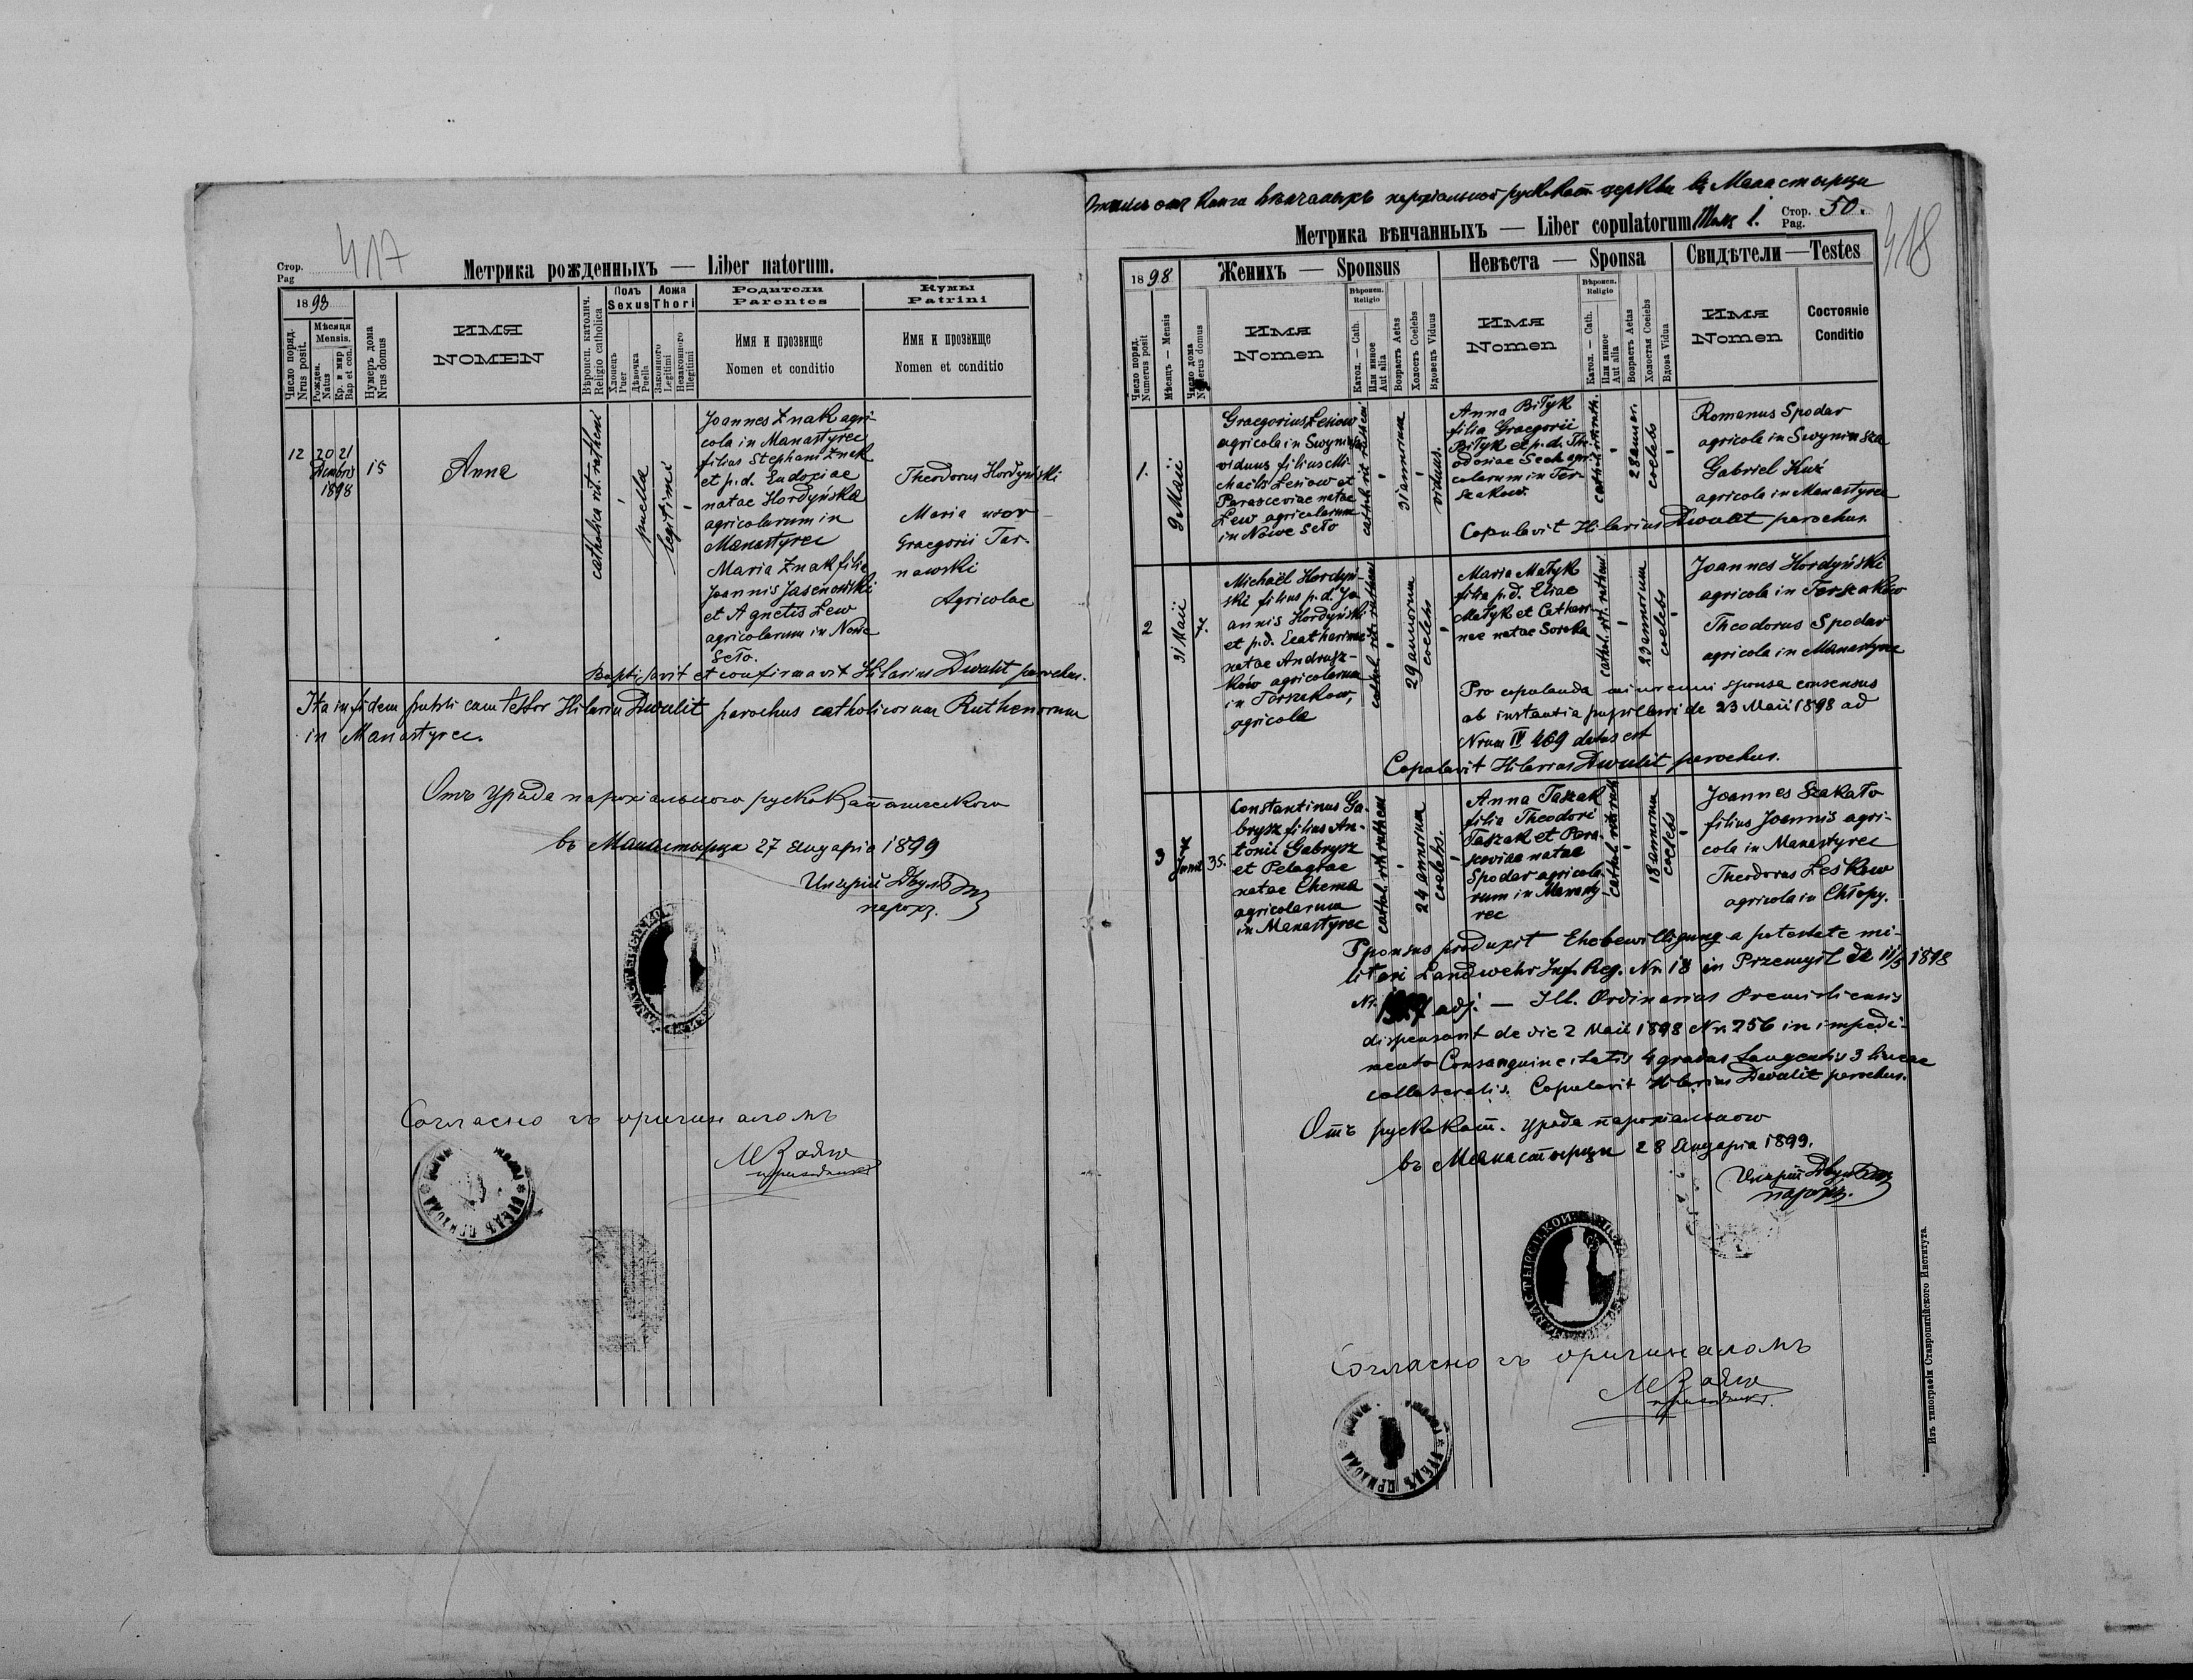 417
Стор.
Pag
Метрика рожденныхъ — Liber natorum.
1898
Число поряд.
Nrus posit.
Мѣсяця
Mensis.
Рожден.
Natus
Кр. и мир
Bap et con.
Нумеръ дома
Nrus domus
ИМЯ
NOMEN
Вѣроисп. католич.
Religio catholica
Полъ
Sexus
Хлопецъ
Puer
Дѣвочка
Puella
Ложа
Thori
Законного
Legitimi
Незаконного
Illegitimi
Родители
Parentes
Имя и прозвище
Nomen et conditio
Кумы
Patrini
Имя и прозвище
Nomen et conditio
12
20 21
Decembris
1898
15
Anna
catholica rit. rutheni
puella
legitimi
Joannes Znak agri-
cola in Manastyrec
filius Stephani Znak
et p.d. Eudoxiae
natae Hordyńska
agricolarum in
Manastyrec
Maria Znak filia
Joannis Jasenowski
et Agnetis Lew
agricolarum in Nowe
Seło.
Theodorus Hordyński
Maria uxor
Graegorii Tar-
nawski
Agricolae
Baptisavit et confirmavit Hilarius Dwulit parochus.
Ita in fidem publicam testor Hilarius Dwulit parochus catholicorum Ruthenorum
in Manastyrec.
Отъ уряда парохіального руского католического
въ Манастырци 27 Януарія 1899
Иларій Двулѣтъ
парохъ.
Согласно съ оригиналомъ
418
церкви въ Манастырци
Метрика вѣнчанныхъ — Liber copulatorum
Стор.
Pag.
50.
1898
Число поряд.
Numerus posit
Мѣсяцъ — Mensis
Число дома
Numerus domus
Женихъ — Sponsus
Имя
Nomen
Вѣроисп.
Religio
Катол. — Cath.
Или инное
Aut alia
Возрастъ Aetas
Холостъ Coelebs
Вдовецъ Viduus
Невѣста — Sponsa
Имя
Nomen
Вѣроисп.
Religio
Катол. — Cath.
Или инное
Aut alia
Возрастъ Aetas
Холостая Coelebs
Вдова Vidua
Свидѣтели — Testes
Имя
Nomen
Состояніе
Conditio
1.
9 Maii
Graegorius Lesiow
agricola in
viduus filius Mi-
chaelis Lesiow et
Parasceviae natae
Lew agricolarum
in Nowe Seło
cathol. rit. rutheni
31 annorum
viduus.
Anna Biłyk
filia Graegorii
Biłyk et p.d. The-
odosiae Sech agri-
colarum in Ter-
szakow.
28 annor.
coelebs
Romanus Spodar
agricola in
Gabriel Kuź
agricola in Manastyrec
Copulavit Hilarius Dwulit parochus.
2
31 Maii
Michaël Hordyń-
ski filius p.d. Jo-
annis Hordyński
et p.d. Ecatharinae
natae Andrusz-
ków agricolarum
in Terszakow,
agricola
cathol. rit. rutheni
29 annorum
coelebs
Maria Matyk
filia p.d. Eliae
Matyk et Cathari-
nae natae Soroka
cathol. rit. rutheni
23 annorum
coelebs
Joannes Hordyński
agricola in Terszaków
Theodorus Spodar
agricola in Manastyrec
Pro copulanda minorenni sponsa consensus
ab instantia pupillari de 23 Maii 1898 ad
Nrum IV 469 datus est
Copulavit Hilarius Dwulit parochus.
3
Junii
35.
Constantinus Ga-
brysz filius An-
tonii Gabrysz
et Pelagiae
natae Chema
agricolarum
in Manastyrec
cathol. rit. rutheni
24 annorum
coelebs.
Anna Taszak
filia Theodori
Taszak et Para-
sceviae natae
Spodar agricola-
rum in Manasty-
rec
18 annorum
coelebs
Joannes Szakało
filius Joannis agri-
cola in Manastyrec
Theodorus Leśkow
agricola in Chłopy.
Sponsus produxit Ehebewilligung a potestate mi-
litari Landwehr Inf. Reg. Nr. 18 in Przemyśl de 11/5 1898
Nr. adj. — Ill. Ordinarius Premisliensis
dispensavit de die 2 Maii 1898 Nr. 256 in impedi-
mento Consanguineitatis 4 gradus tangentis 3 lineae
collateralis. Copulavit Hilarius Dwulit parochus.
Отъ руско кат. уряда парохіального
въ Манастырци 28 Януарія 1899.
Иларій Двулѣтъ
парохъ.
Согласно съ оригиналомъ
Изъ типографіи Ставропигійского Института.